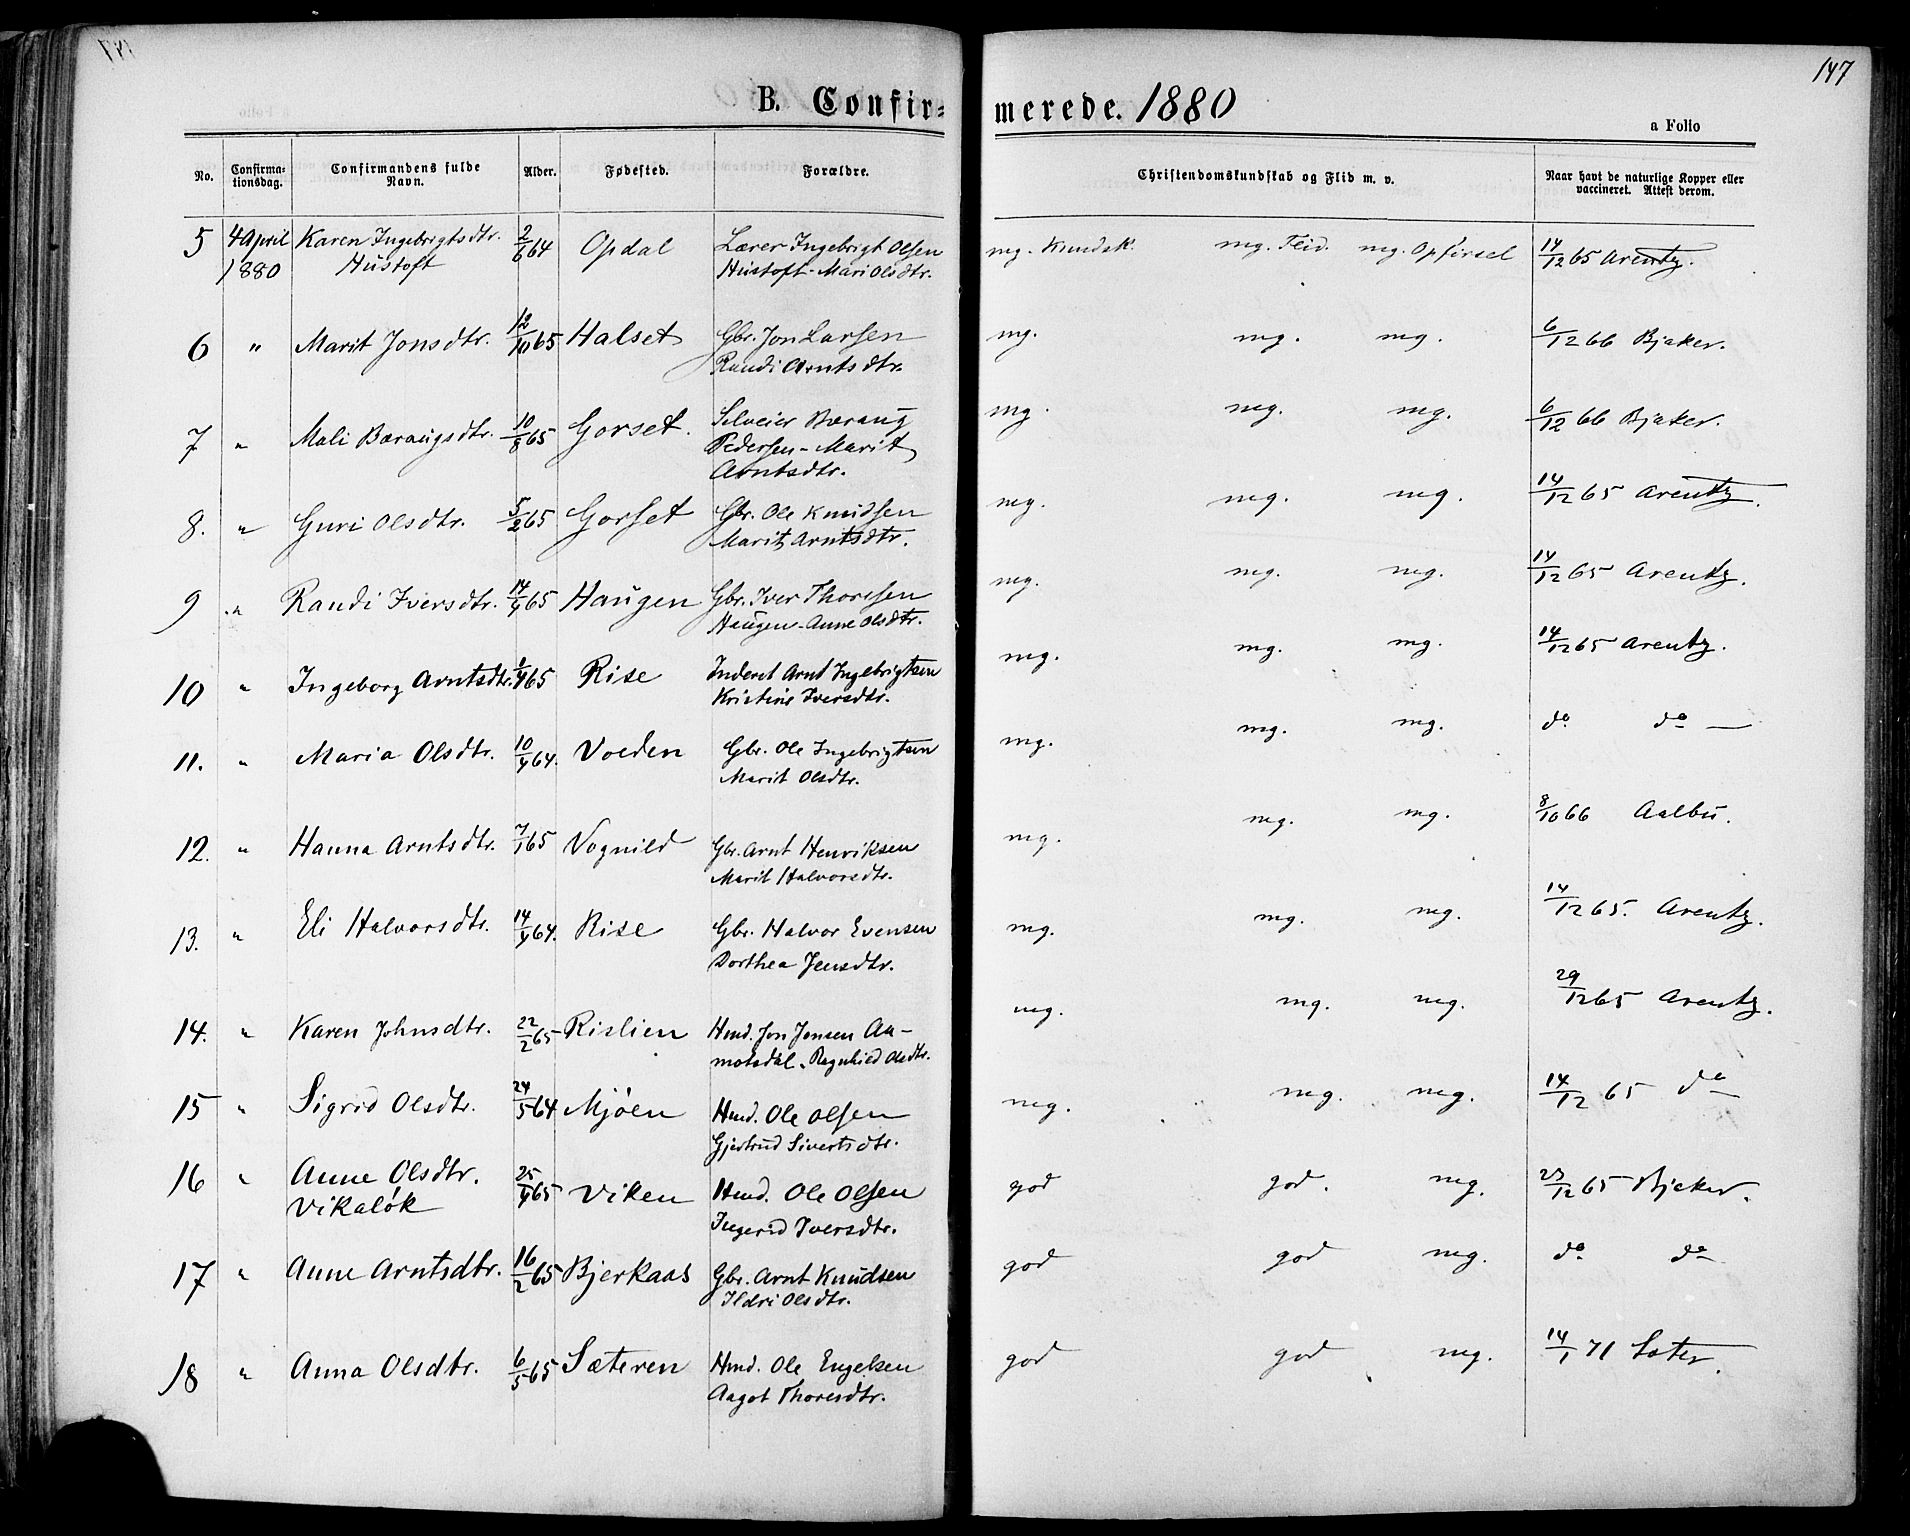 147
B. Confir= merede. 1880
a Folio
No. Confirma-tionsdag. Confirmandens fulde Navn. Alder. Fødested. Forældre. Christendomskundskab og Flid m. v. Naar havt de naturlige Kopper eller vaccineret. Attest derom.
5 4 April Karen Ingebrigtsdtr. 2/6 64 Opdal Lærer Ingebrigt Olsen mg. Kundsk. mg. Flid. mg. Opførsel 14/12 65 Arentz.
1880 Hustoft Hustoft - Mari Olsdtr.
6 " Marit Jonsdtr. 12/10 65 Halset Gbr. Jon Larsen mg. mg. mg. 6/12 66 Bjaker.
Randi Arntsdtr.
7 " Mali Baraugsdtr. 10/8 65 Gorset. Selveier Baraug mg. mg. mg. 6/12 66 Bjaker.
Pedersen - Marit
Arntsdtr.
8. " Guri Olsdtr. 5/2 65 Gorset Gbr. Ole Knudsen mg. mg. mg. 14/12 65 Arentz.
Marit Arntsdtr.
9 " Randi Iversdtr. 14/4 65 Haugen Gbr. Iver Thoresen mg. mg. mg. 14/12 65 Arentz.
Haugen - Anne Olsdtr.
10 " Ingeborg Arntsdtr. 1/4 65 Rise Inderst Arnt Ingebrigtsen mg. mg. mg. 14/12 65 Arentz.
Kristine Iversdtr.
11. " Maria Olsdtr. 10/4 64. Voeden Gbr. Ole Ingebrigtsen mg. mg. mg. do do —
Marit Olsdtr.
12. " Hanna Arntsdtr. 7/1 65 Vognild Gbr. Arnt Henriksen mg. mg. mg. 8/10 66 Aalbu.
Marit Halvorsdtr.
13. " Eli Halvorsdtr. 14/4 64. Rise Gbr. Halvor Evensen mg. mg. mg. 14/12 65. Arentz.
Dorthea Jensdtr.
14. " Karen Johnsdtr. 22/2 65 Rislien Hmd. Jon Jonsen Aa- mg. mg. mg. 29/12 65 Arentz.
motsdal. Ragnhild Olsdtr.
15 " Sigrid Olsdtr. 24/5 64 Mjöen Hmd. Ole Olsen mg. mg. mg. 14/12 65 do
Gjertrud Sivertsdtr.
16 " Anne Olsdtr. 25/4 65 Viken Hmd. Ole Olsen god god. mg. 23/12 65 Bjeker.
Vikaløk Ingerid Iversdtr.
17 " Anne Arntsdtr. 16/2 65 Bjerkaas Gbr. Arnt Knudsen god god mg. do do
Ildri Olsdtr.
18 " Anna Olsdtr. 6/5 65 Sæteren Hmd. Ole Engelsen god god mg. 14/1 71 Sæter.
Aagot Thoresdtr.